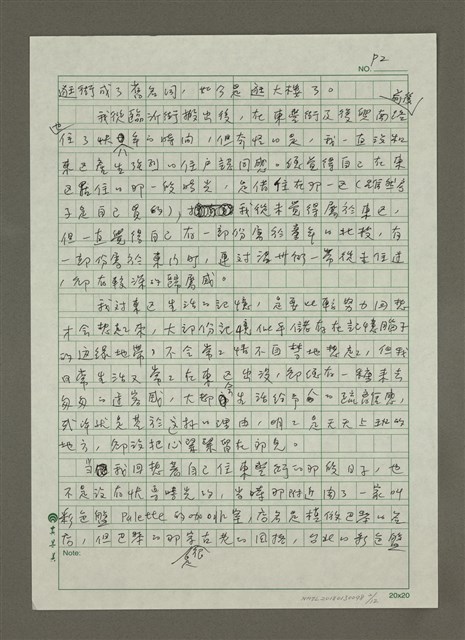 P2
NO.
逛街成了舊名詞，如今是逛大樓了。
我從臨沂街搬出後，在東豐街及復興南路前後
也住了快八年的時間，但奇怪的是，我一直沒和
東區產生強烈的住戶認同感。總覺得自己在東
區居住的那一段時光，是借住在那一區（雖然房
子是自己買的），我從未覺得屬於東區，
但一直覺得自己有一部份屬於童年的北投，有
一部份屬於東門町，連對溫州街一帶從未住過
，卻有較深的歸屬感。
我對東區生活的記憶，是要比較努力回想
才會想起來，大部份記憶似乎儲存在記憶腦子
的邊緣地帶，不會常常情不自禁地想起，但我
日常生活又常常在東區出沒，卻總有一種來去
匆匆的虛質感，大都會生活給予人的疏離經驗，
或許就是基於這樣的理由，明明是天天上班的
地方，卻沒把心緊緊留在那兒。
當我回想著自己住東豐街的那段日子，也
不是沒有快樂時光的，當時那附近開了一家叫
彩色盤 Palette的咖啡室，店名是模仿巴黎的名
店，但巴黎的那家在花的回搭，台北的彩色盤
是很
Note:
20x20